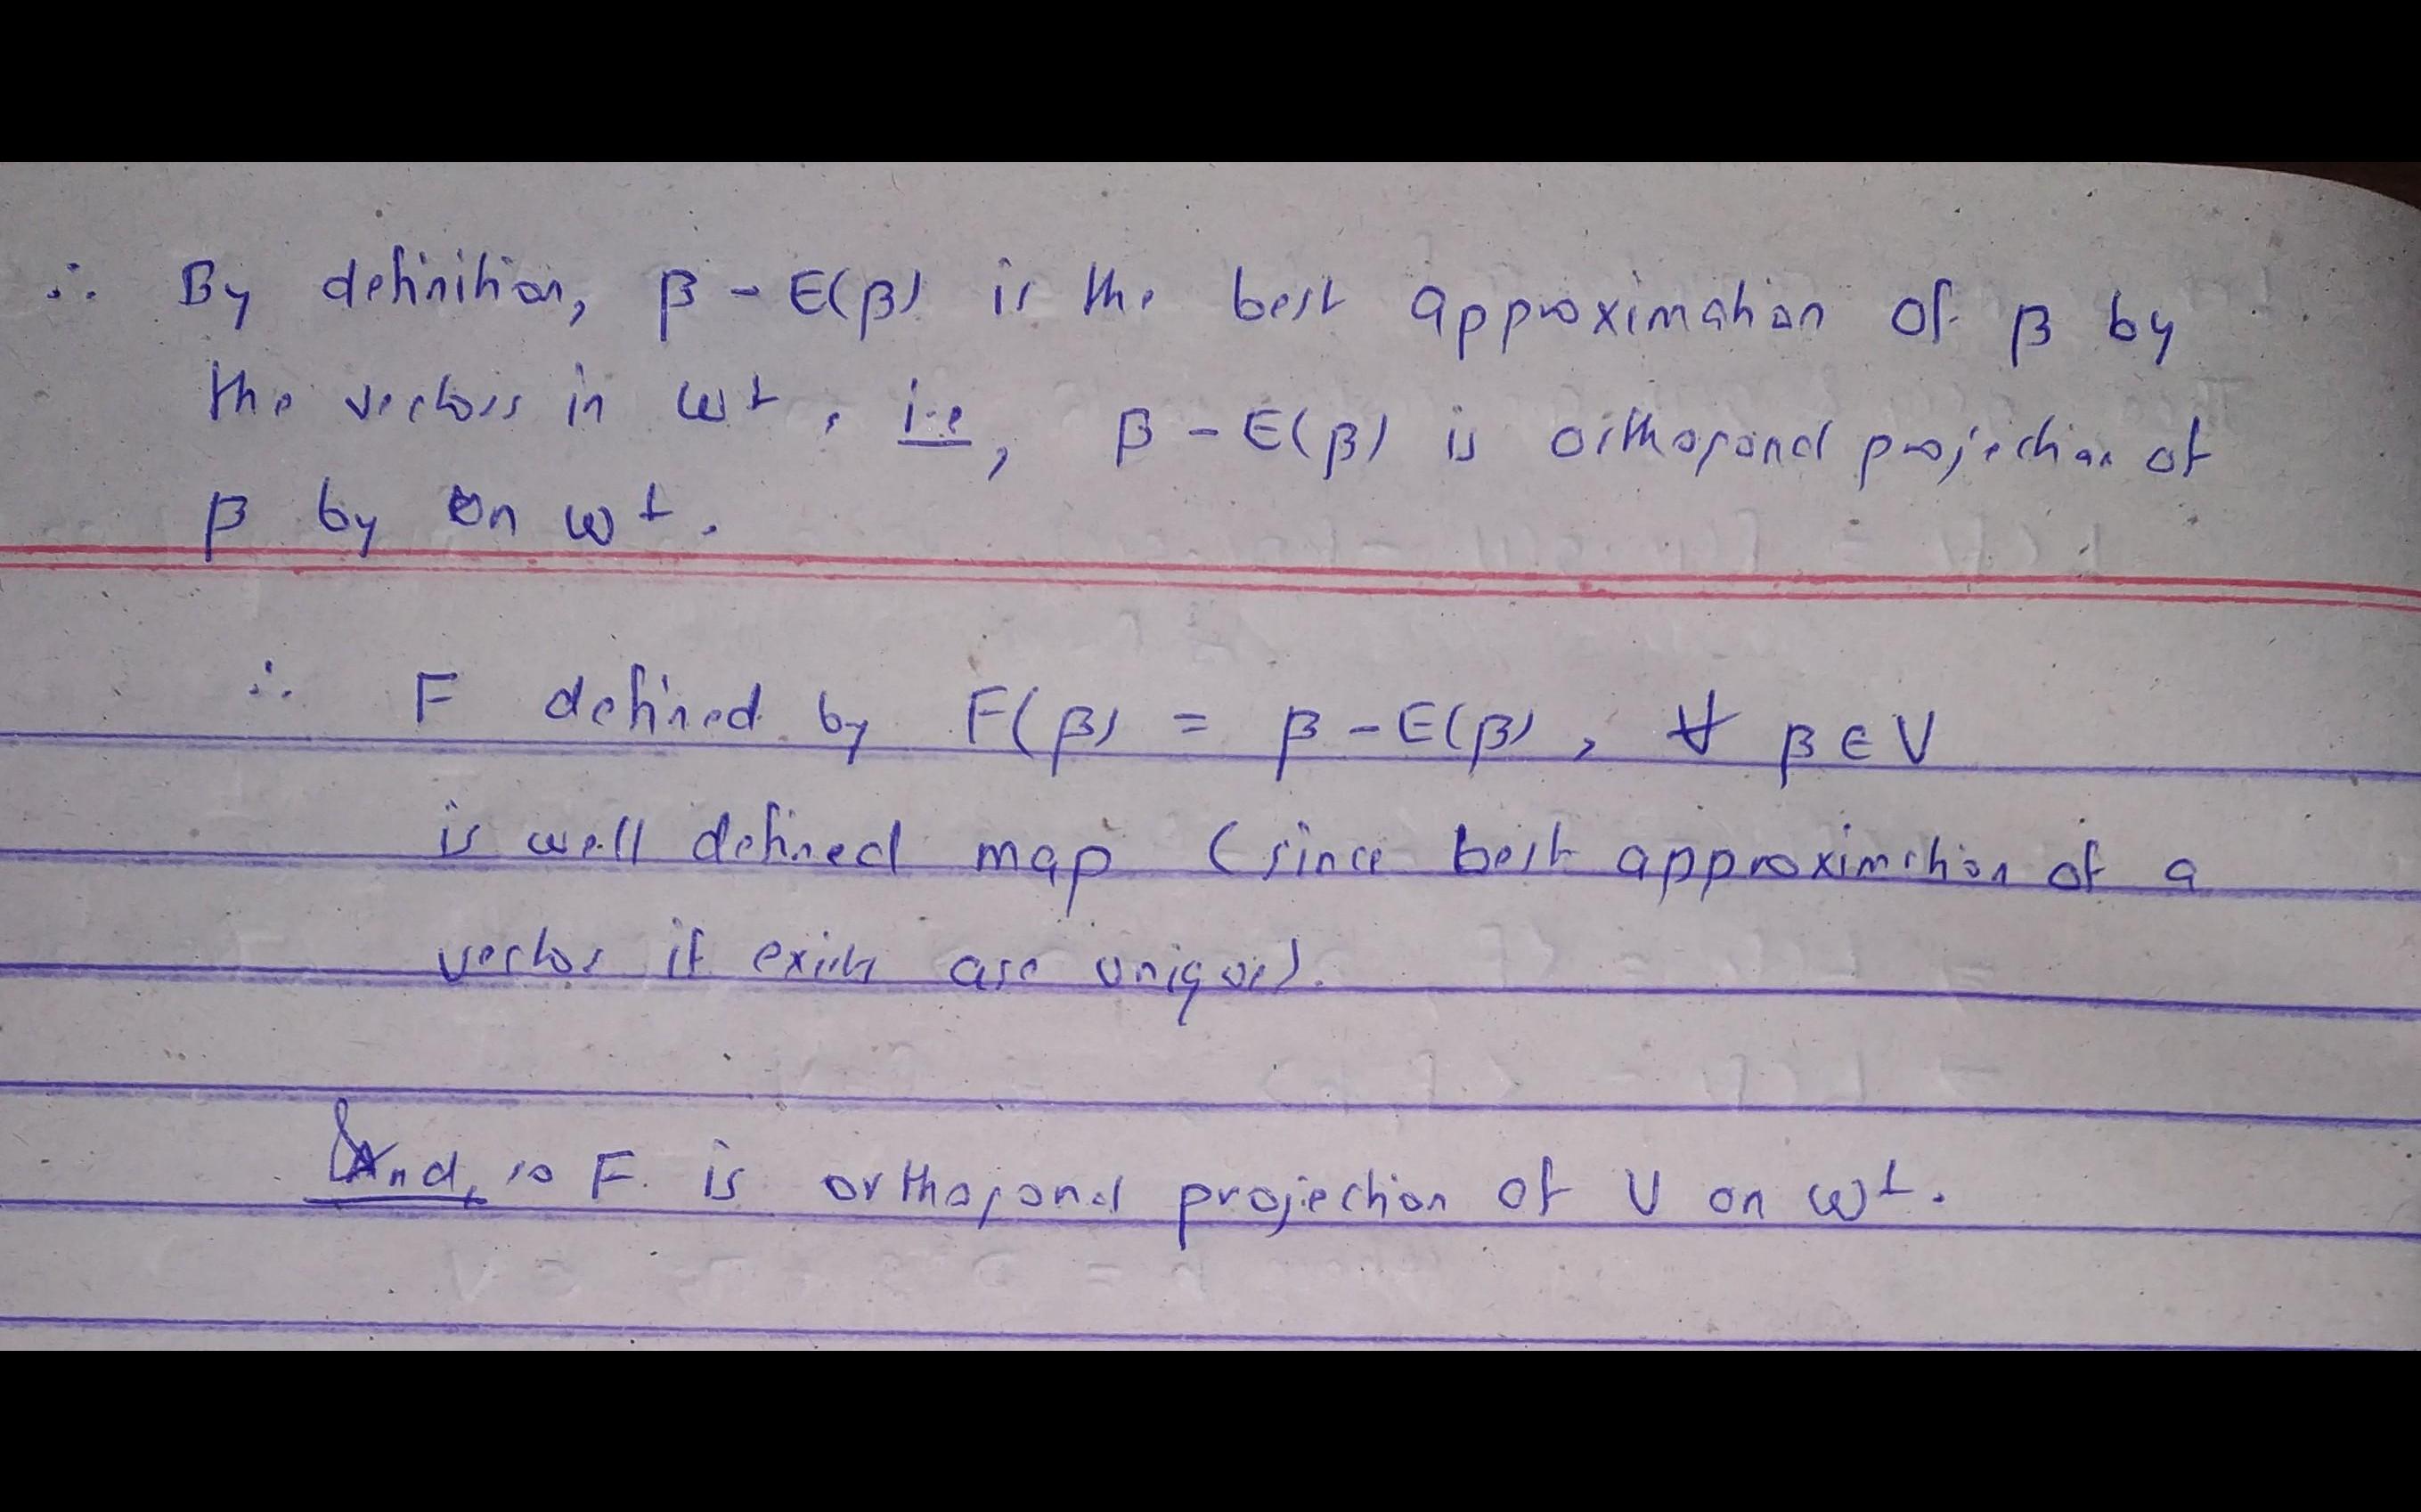 ∴ By definition, β - E(β) is the best approximation of β by
the vectors in W⊥, i.e, β - E(β) is orthogonal projection of
β by on W⊥.
∴ F defined by F(β) = β - E(β), ∀ β ∈ V
is well defined map (since best approximation of a
vector if exists are unique).
And, so F is orthogonal projection of V on W⊥.